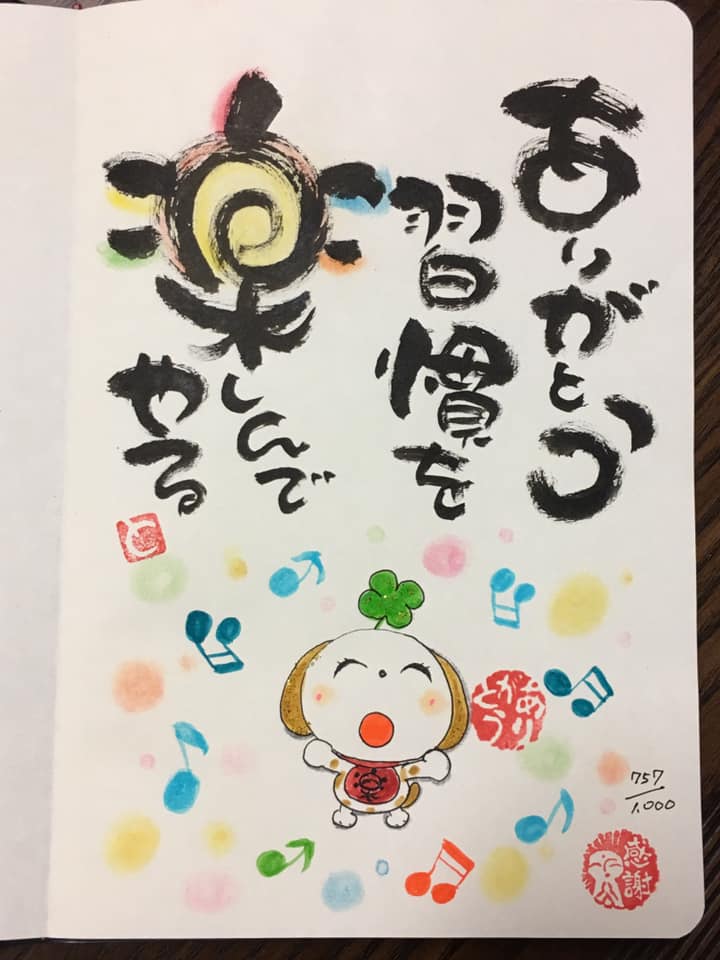 ありがとう
習慣を
楽しんで
やる
と
楽
ありがとう
757/1,000
感謝